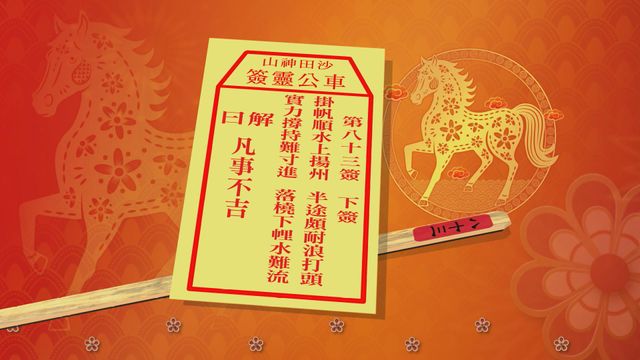 沙田神山
車公靈簽
第八十三簽 下簽
掛帆順水上揚州 半途頗耐浪打頭
實力撐持難寸進 落橈下𢃇水難流
解曰
凡事不吉
八十三